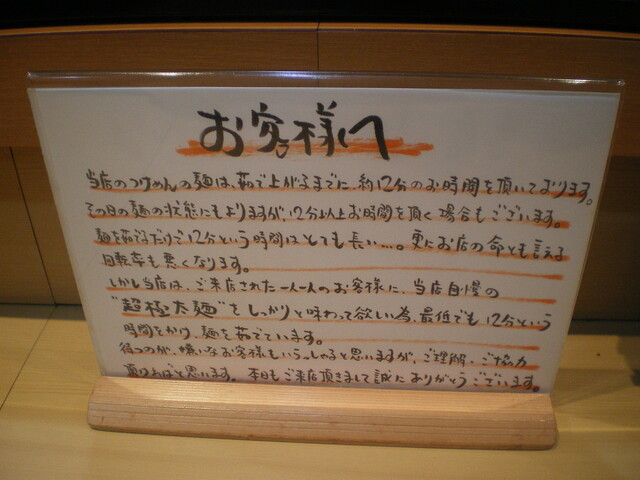 お客様へ
当店のつけめんの麺は、茹で上がるまでに、約12分のお時間を頂いております。
その日の麺の状態にもよりますが、12分以上お時間を頂く場合もございます。
麺を茹でるだけで12分という時間はとても長い…。更にお店の命とも言える
回転率も悪くなります。
しかし当店は、ご来店された一人一人のお客様に、当店自慢の
"超極太麺"をしっかりと味わって欲しい為、最低でも12分という
時間をかけ、麺を茹でています。
待つのが、嫌いなお客様もいらっしゃると思いますが、ご理解・ご協力
頂ければと思います。本日もご来店頂きまして誠にありがとうございます。